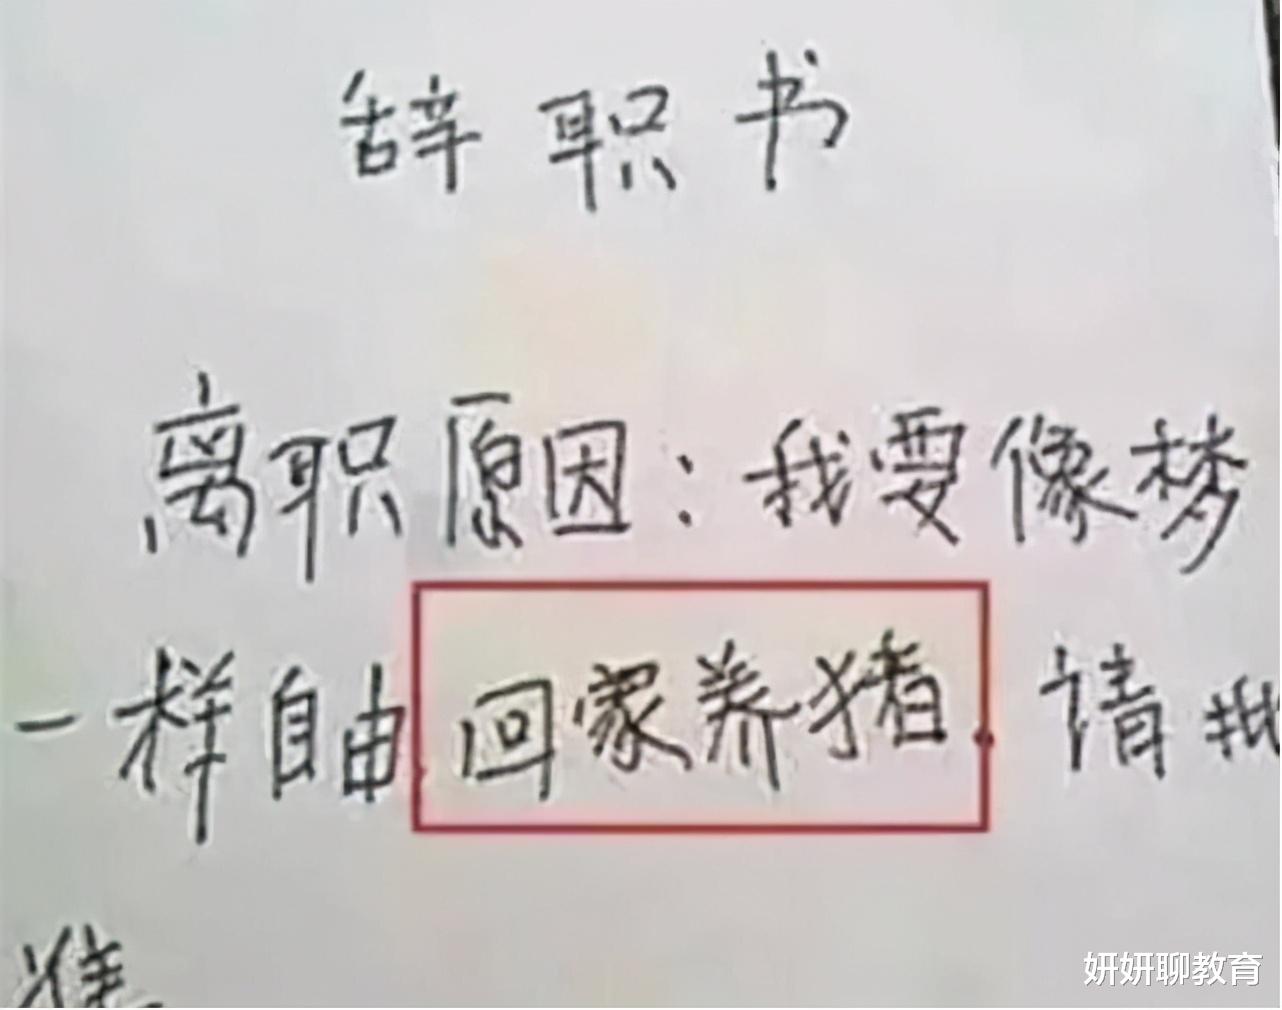 辞职书
离职原因:我要像梦
一样自由回家养猪.请批
准
妍妍聊教育